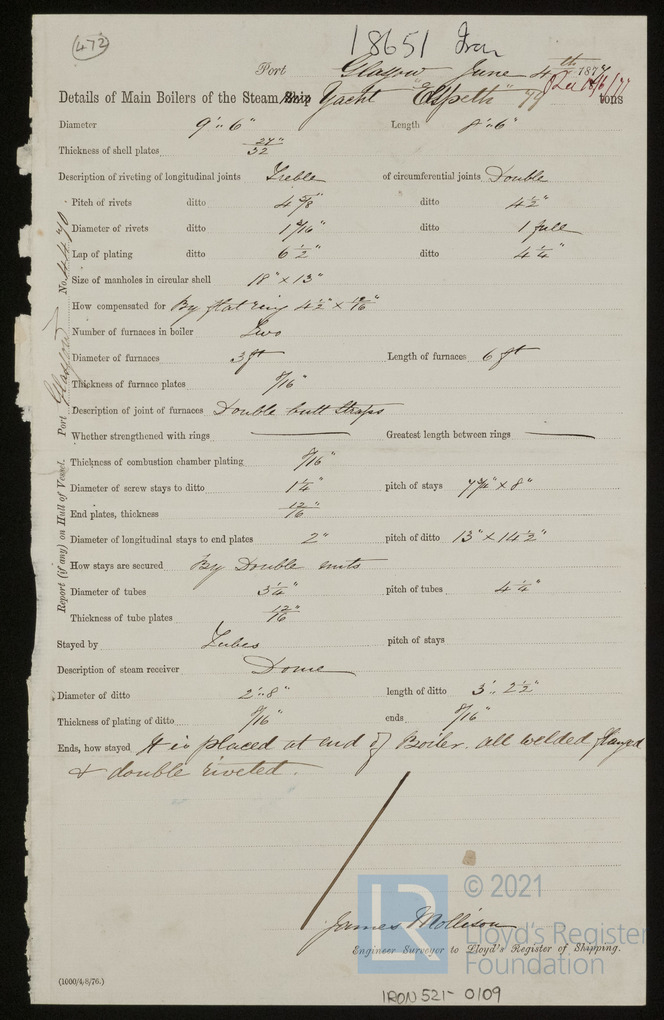 472
18651 Iron
Port Glasgow June 4th 1877
Details of Main Boilers of the Steam Ship Yacht "Elspeth" 79 tons
Diameter 9'.. 6" Length 8'.. 6"
Thickness of shell plates 27/32"
Description of riveting of longitudinal joints Treble of circumferential joints Double
Pitch of rivets ditto 4 5/8" ditto 4 1/2"
Diameter of rivets ditto 1 1/16" ditto 1 full
Lap of plating ditto 6 1/2" ditto 4 1/4"
Size of manholes in circular shell 18" x 13"
How compensated for By flat ring 4 1/2" x
Number of furnaces in boiler Two
Diameter of furnaces 3 ft Length of furnaces 6 ft
Thickness of furnace plates 8/16"
Description of joint of furnaces Double butt straps
Whether strengthened with rings Greatest length between rings
Thickness of combustion chamber plating 8/16"
Diameter of screw stays to ditto 1 1/4" pitch of stays 7 3/4" x 8"
End plates, thickness 12/16"
Diameter of longitudinal stays to end plates 2" pitch of ditto 13" x 14 1/2"
How stays are secured By Double nuts
Diameter of tubes 3 1/4" pitch of tubes 4 1/4"
Thickness of tube plates 12/16"
Stayed by Tubes pitch of stays
Description of steam receiver Dome
Diameter of ditto 2'..8" length of ditto 3'.. 2 1/2"
Thickness of plating of ditto 8/16" ends 8/16"
Ends, how stayed It is placed at end of Boiler. all welded, flanged
& double riveted.
James Mollison
Engineer Surveyor to Lloyd's Register of Shipping.
(1000/4/8/76.)
IRON 521-0109
Report (if any) on Hull of Vessel. Port Glasgow No. 4470
LR © 2021
Lloyd's Register
Foundation